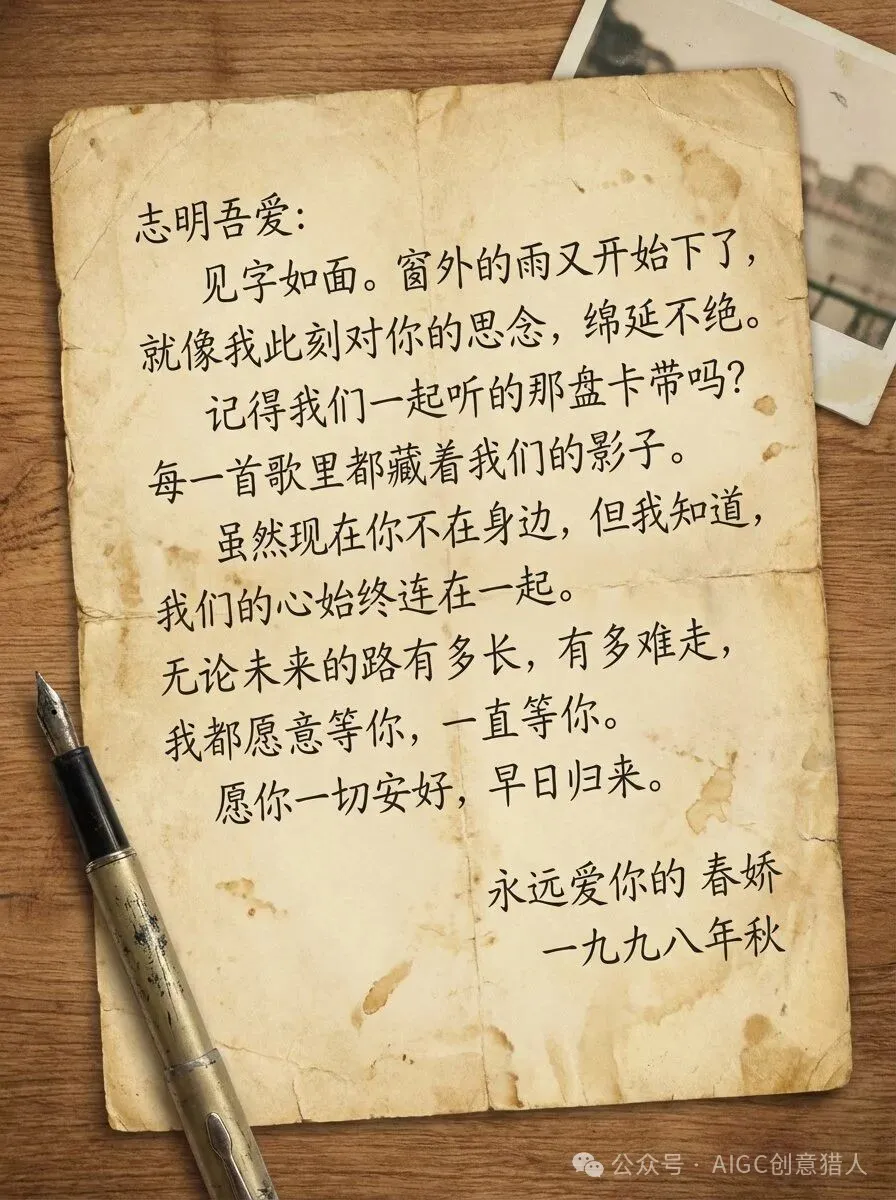 志明吾爱：
见字如面。窗外的雨又开始下了，
就像我此刻对你的思念，绵延不绝。
记得我们一起听的那盘卡带吗？
每一首歌里都藏着我们的影子。
虽然现在你不在身边，但我知道，
我们的心始终连在一起。
无论未来的路有多长，有多难走，
我都愿意等你，一直等你。
愿你一切安好，早日归来。
永远爱你的 春娇
一九九八年秋
公众号 · AIGC创意猎人